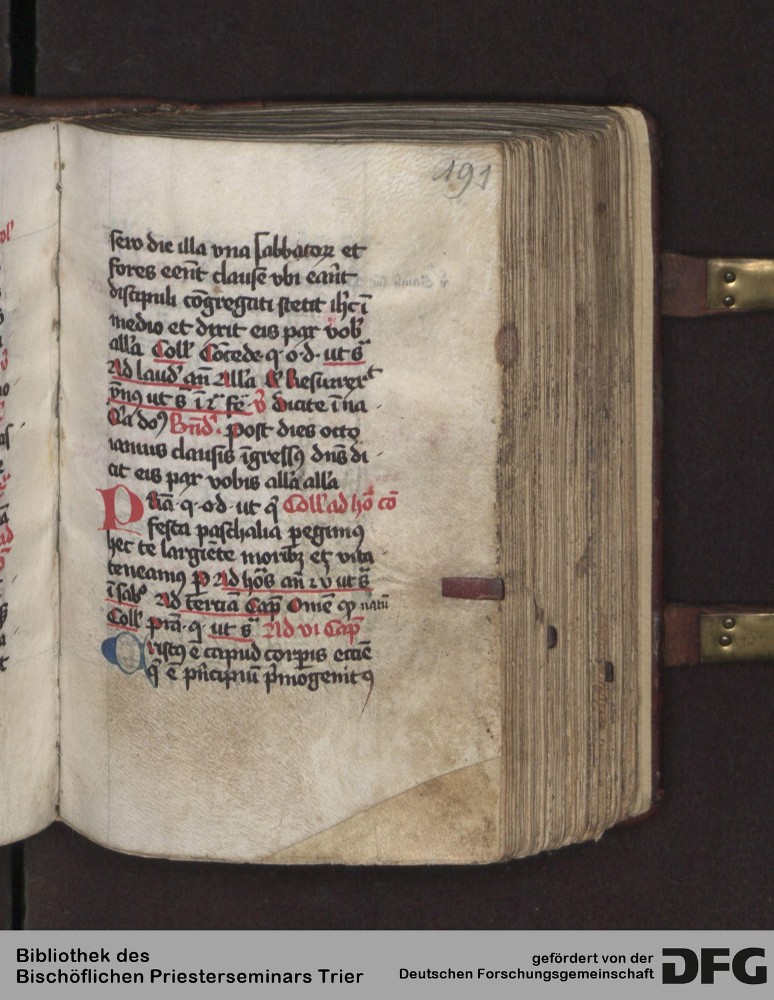 191
sero die illa vna sabbatoꝝ et
fores eēnt clause vbi eāt
discipuli ɔ̄gregati stetit ih̅c ī
medio et dixit eis pax vob̾
all'a Coll' Cōcede q̄ o d ut s̄
Ad laud' an̄ All'a Resurrex̾t
ut s̄ ī fē v̾ dicite ī na
Bn̄d' post dies octo
ianuis clausis īgressꝰ dn̄s di
xit eis pax vobis all'a all'a
P̄sta q̄ o d ut q̄ Coll' ad hō cō
festa paschalia pegimꝰ
hec te largiēte moribꝫ et vita
teneamꝰ p̄ Ad hōs an̄ ⁊ v ut s̄
ī sabb̾ Ad terciā Cap̄ Omē qp̄ natū
Coll' p̄sta q̄ ut s̄ Ad vi Cap̄
Cristꝰ ē capud corpis eccē
q̄ ē p'ncipiū p'mogenitꝰ
Bibliothek des
Bischöflichen Priesterseminars Trier
gefördert von der
Deutschen Forschungsgemeinschaft
DFG